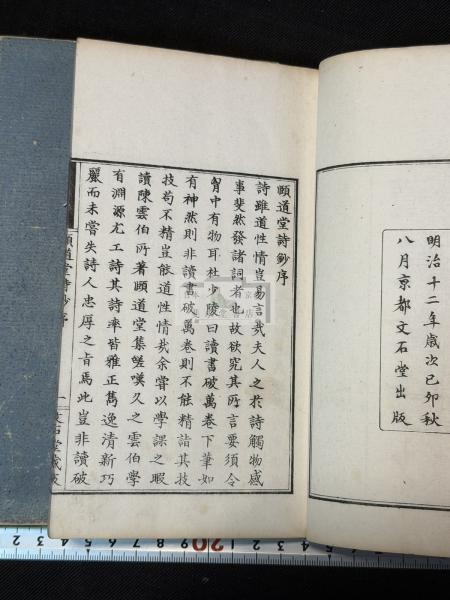 明治十二年歲次己卯秋
八月京都文石堂出版
頤道堂詩鈔序
詩雖道性情豈易言哉夫人之於詩觸物感
事斐然發諸詞者也故欲究其所言要須令
胷中有物耳杜少陵曰讀書破萬卷下筆如
有神然則非讀書破萬卷則不能精詣其技
技苟不精豈能道性情哉余嘗以學課之暇
讀陳雲伯所著頤道堂集嗟嘆久之雲伯學
有淵源尤工詩其詩率皆雅正雋逸清新巧
麗而未嘗失詩人忠厚之旨焉此豈非讀破
頤道堂詩鈔序
一
文石堂藏板
20